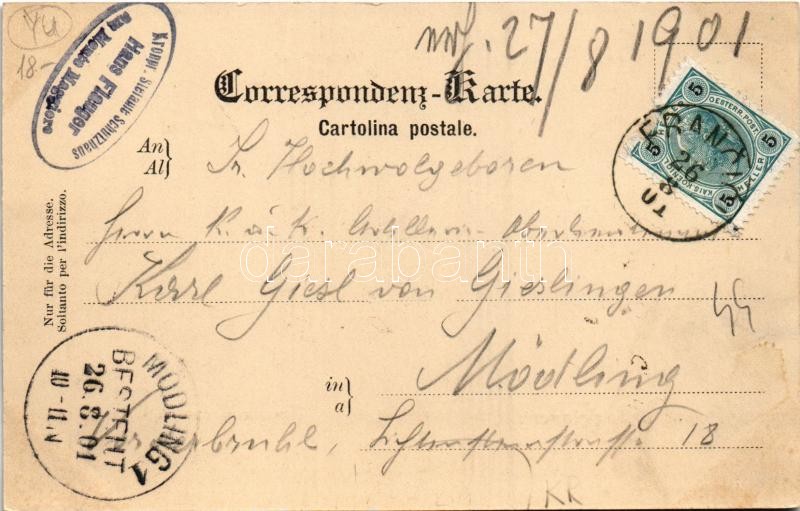 YU
18-
Kronpr. Stefanie Schutzhaus
Hans Flogger
am Monte Maggiore
27/8 1901
Correspondenz-Karte.
Cartolina postale.
An
Al
Sr. Hochwolgeboren
Herrn k. u. k. Artillerie-Oberlieutenant
Karl Giesl von Gieslingen
in
a
Mödling
18
Nur für die Adresse.
Soltanto per l'indirizzo.
5
OESTERR. POST
5
HELLER
KAIS. KÖNIGL.
26
8
01
MÖDLING 1
BESTELLT
26.8.01
10-11.V
darabanth
KR